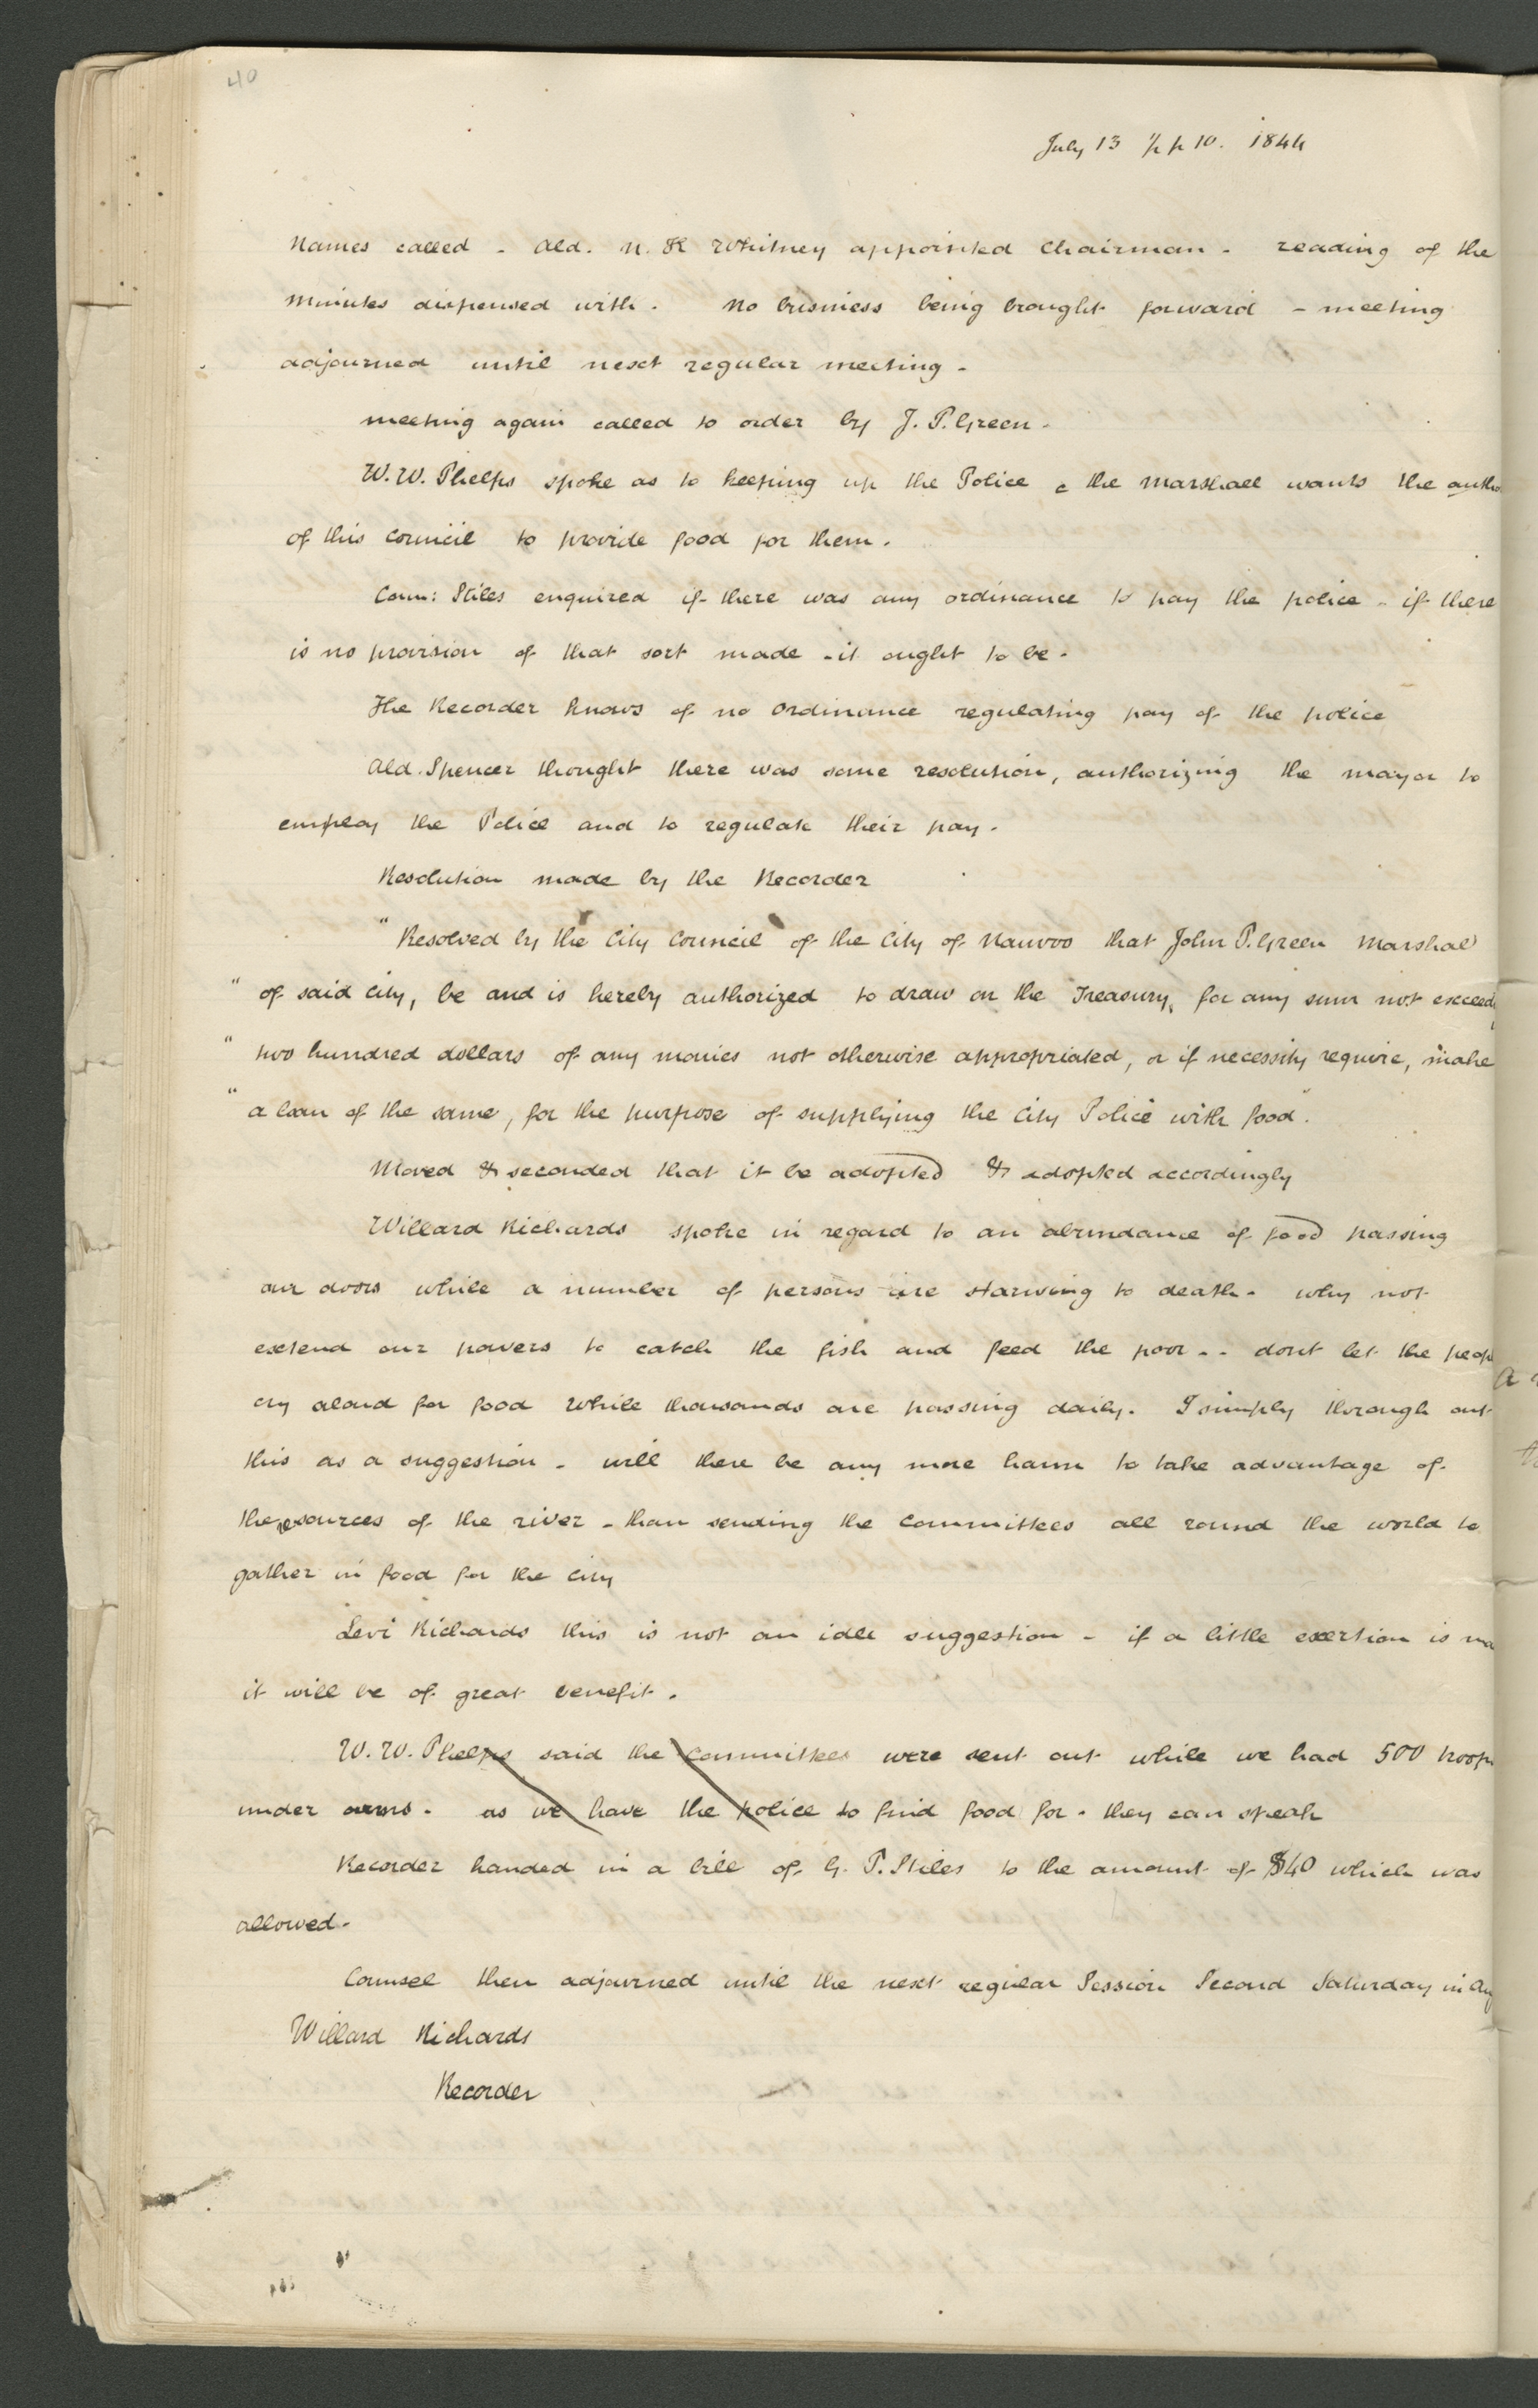 40
July 13 ½ p 10. 1844
Names called - Ald. N. K Whitney appointed Chairman - reading of the
minutes dispensed with. No business being brought forward - meeting
adjourned until next regular meeting -
meeting again called to order by J. P. Green -
W. W. Phelps spoke as to keeping up the Police & the Marshall wants the autho
of this Council to provide food for them.
Coun: Stiles enquired if there was any ordinance to pay the police - if there
is no provision of that sort made - it ought to be -
The Recorder knows of no Ordinance regulating pay of the police
Ald. Spencer thought there was some resolution, authorizing the mayor to
employ the Police and to regulate their pay -
Resolution made by the Recorder
"Resolved by the City Council of the City of Nauvoo that John P. Green Marshal
" of said City, be and is hereby authorized to draw on the Treasury, for any sum not exceedi
" two hundred dollars of any monies not otherwise appropriated, or if necessity require, make
" a loan of the same, for the purpose of supplying the City Police with food".
Moved & seconded that it be adopted & adopted accordingly
Willard Richards spoke in regard to an abundance of food passing
our doors while a number of persons are starving to death - why not
extend our powers to catch the fish and feed the poor - - dont let the peop
cry aloud for food while thousands are passing daily. I simply through out
this as a suggestion - will there be any more harm to take advantage of
the resources of the river - than sending the Committees all round the world to
gather in food for the City
Levi Richards this is not an idle suggestion - if a little exertion is ma
it will be of great benefit.
W. W. Phelps said the Committees were sent out while we had 500 troops
under arms. as we have the police to find food for - they can speak
Recorder handed in a bill of G. P. Stiles to the amount of $40 which was
allowed -
Counsel then adjourned until the next regular Session Second Saturday in Aug
Willard Richards
Recorder